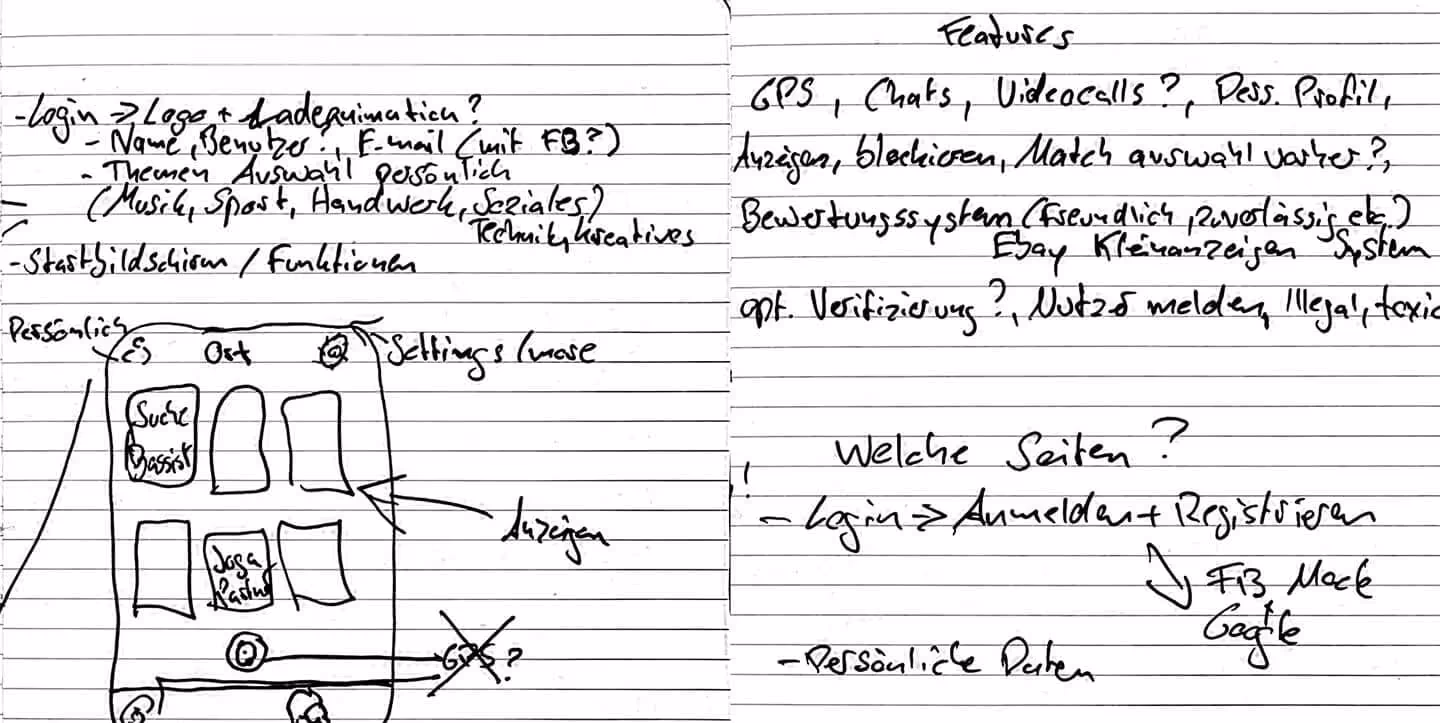 -Login => Logo + Ladeanimation?
- Name, Benutzer?, E-mail (mit FB?)
- Themen Auswahl persönlich
(Musik, Sport, Handwerk, Soziales)
Technik, kreatives
-Startbildschirm / Funktionen
Persönlich
Ort
Settings/more
Suche
Bassist
Anzeigen
Joga
Partner
GPS?
Features
GPS, Chats, Videocalls?, Pers. Profil,
Anzeigen, blockieren, Match auswahl vorher?,
Bewertungssystem (Freundlich, zuverlässig, etc.)
Ebay Kleinanzeigen System
opt. Verifizierung?, Nutzer melden, Illegal, toxic
Welche Seiten?
!
- Login => Anmelden + Registrieren
FB Mock
+
Google
- Persönliche Daten